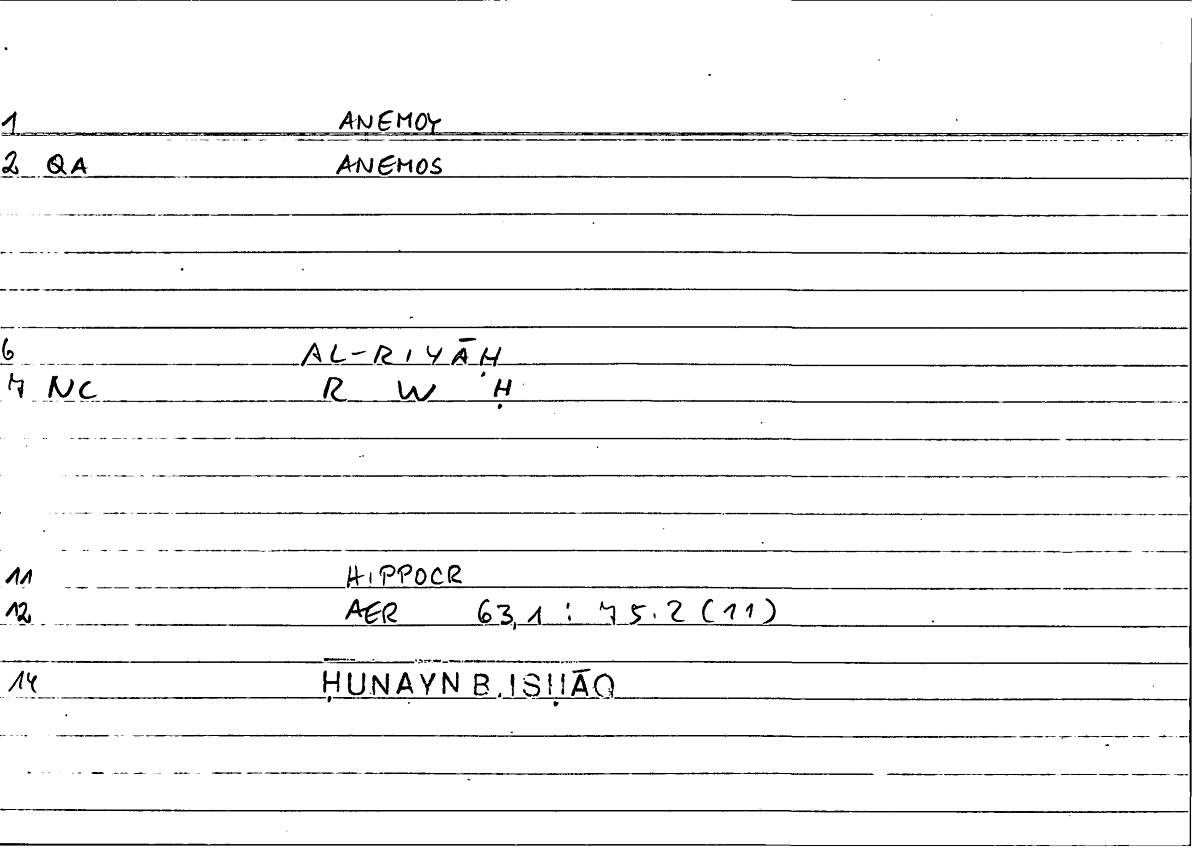 1 ANEMOY
2 QA ANEMOS
6 AL-RIYĀḤ
7 NC R W Ḥ
11 HIPPOCR
12 AER 63,1 : 75.2 (11)
14 ḤUNAYN B. ISḤĀQ